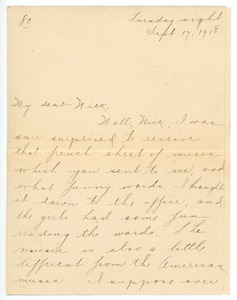 80
Tuesday night,
Sept 17, 1918.
My dear Nick.
Well, Nick, I was
sure surprised to receive
that french sheet of music
which you sent to me, and
what funny words. I brought
it down to the office, and
the girls had some fun
reading the words. The
music is also a little
different from the American
music. I suppose over